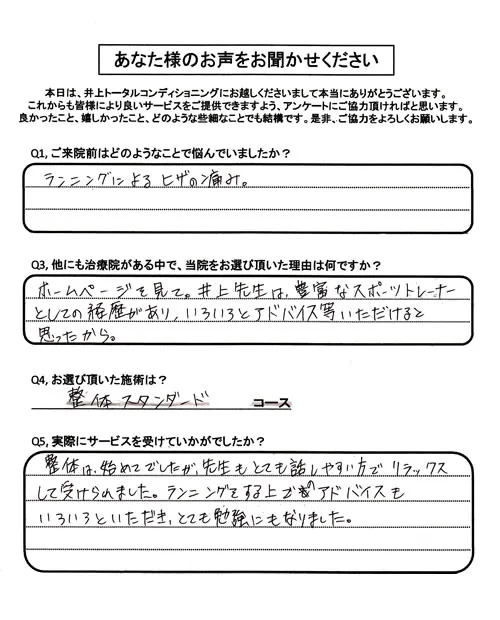 あなた様のお声をお聞かせください
本日は、井上トータルコンディショニングにお越しくださいまして本当にありがとうございます。
これからも皆様により良いサービスをご提供できますよう、アンケートにご協力頂ければと思います。
良かったこと、嬉しかったこと、どのような些細なことでも結構です。是非、ご協力をよろしくお願いします。
Q1, ご来院前はどのようなことで悩んでいましたか？
ランニングによるヒザの痛み。
Q3, 他にも治療院がある中で、当院をお選び頂いた理由は何ですか？
ホームページを見て。井上先生は、豊富なスポーツトレーナー
としての経歴があり、いろいろとアドバイス等いただけると
思ったから。
Q4, お選び頂いた施術は？
整体スタンダード コース
Q5, 実際にサービスを受けていかがでしたか？
整体は、始めてでしたが、先生もとても話しやすい方でリラックス
して受けられました。ランニングをする上でのアドバイスも
いろいろといただき、とても勉強にもなりました。